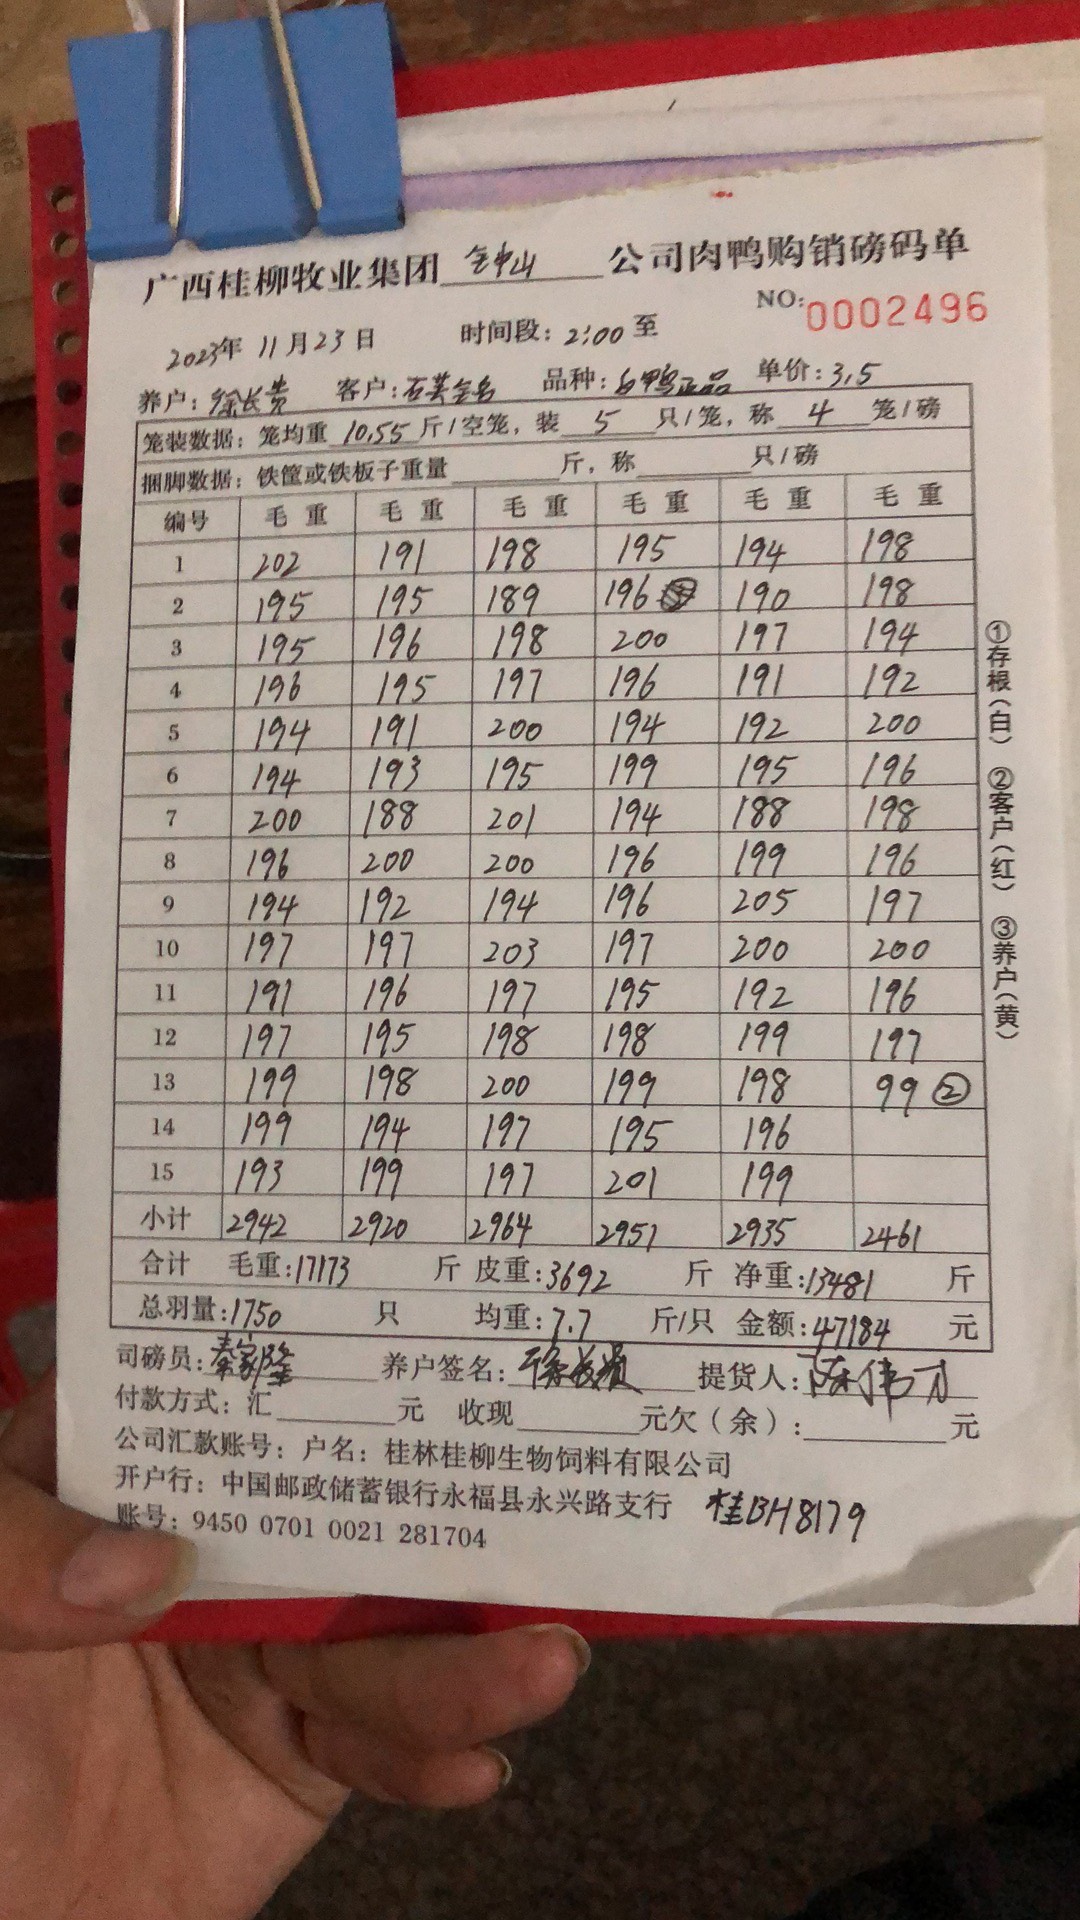 广西桂柳牧业集团 钟山 公司肉鸭购销磅码单
NO:0002496
2023年 11月23日 时间段: 2:00至
养户: 徐长贵 客户: 石英全名 品种: 白鸭正品 单价: 3.5
笼装数据: 笼均重 10.55 斤/空笼, 装 5 只/笼, 称 4 笼/磅
捆脚数据: 铁筐或铁板子重量 斤, 称 只/磅
编号 毛重 毛重 毛重 毛重 毛重 毛重
1 202 191 198 195 194 198
2 195 195 189 196 190 198
3 195 196 198 200 197 194
4 196 195 197 196 191 192
5 194 191 200 194 192 200
6 194 193 195 199 195 196
7 200 188 201 194 188 198
8 196 200 200 196 199 196
9 194 192 194 196 205 197
10 197 197 203 197 200 200
11 191 196 197 195 192 196
12 197 195 198 198 199 197
13 199 198 200 199 198 99 ②
14 199 194 197 195 196
15 193 199 197 201 199
小计 2942 2920 2964 2951 2935 2461
合计 毛重: 17173 斤 皮重: 3692 斤 净重: 13481 斤
总羽量: 1750 只 均重: 7.7 斤/只 金额: 47184 元
司磅员: 秦家隆 养户签名: 徐长贵 提货人:
付款方式: 汇 元 收现 元欠(余): 元
公司汇款账号: 户名: 桂林桂柳生物饲料有限公司
开户行: 中国邮政储蓄银行永福县永兴路支行 桂BH8179
账号: 9450 0701 0021 281704
①存根(白) ②客户(红) ③养户(黄)